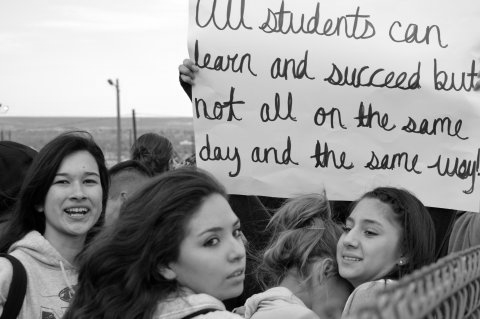 All students can
learn and succeed but
not all on the same
day and the same way!